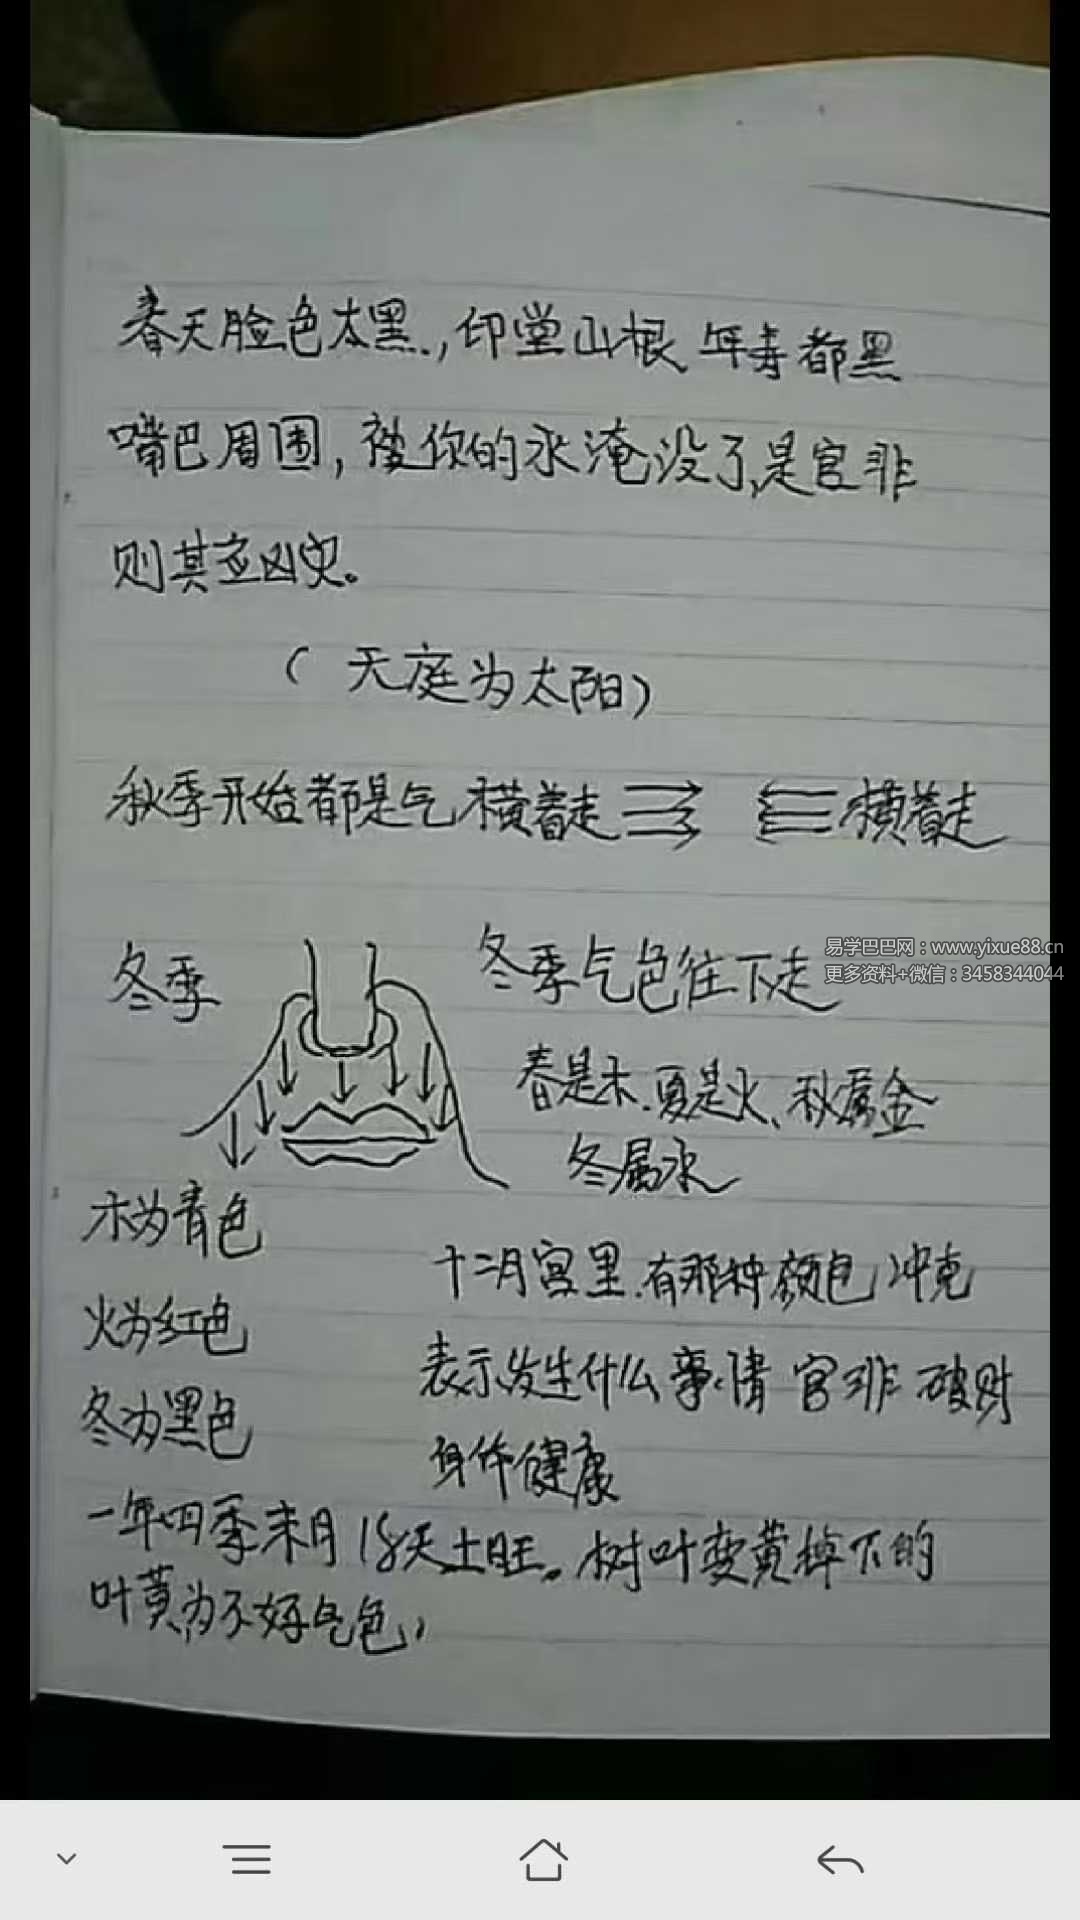 春天脸色太黑.，印堂山根 年寿都黑
嘴巴周围，被你的水淹没了，是官非
则其它凶灾。
（ 天庭为太阳）
秋季开始都是气横着走 横着走
易学巴巴网：www.yixue88.cn
更多资料+微信：3458344044
冬季
冬季气色往下走
春是木.夏是火、秋属金
冬属水
木为青色
十二月宫里.有那种颜色冲克
火为红色
表示发生什么事情 官非 破财
冬为黑色
身体健康
一年四季末月18天土旺。树叶变黄掉下的
叶黄为不好气色，